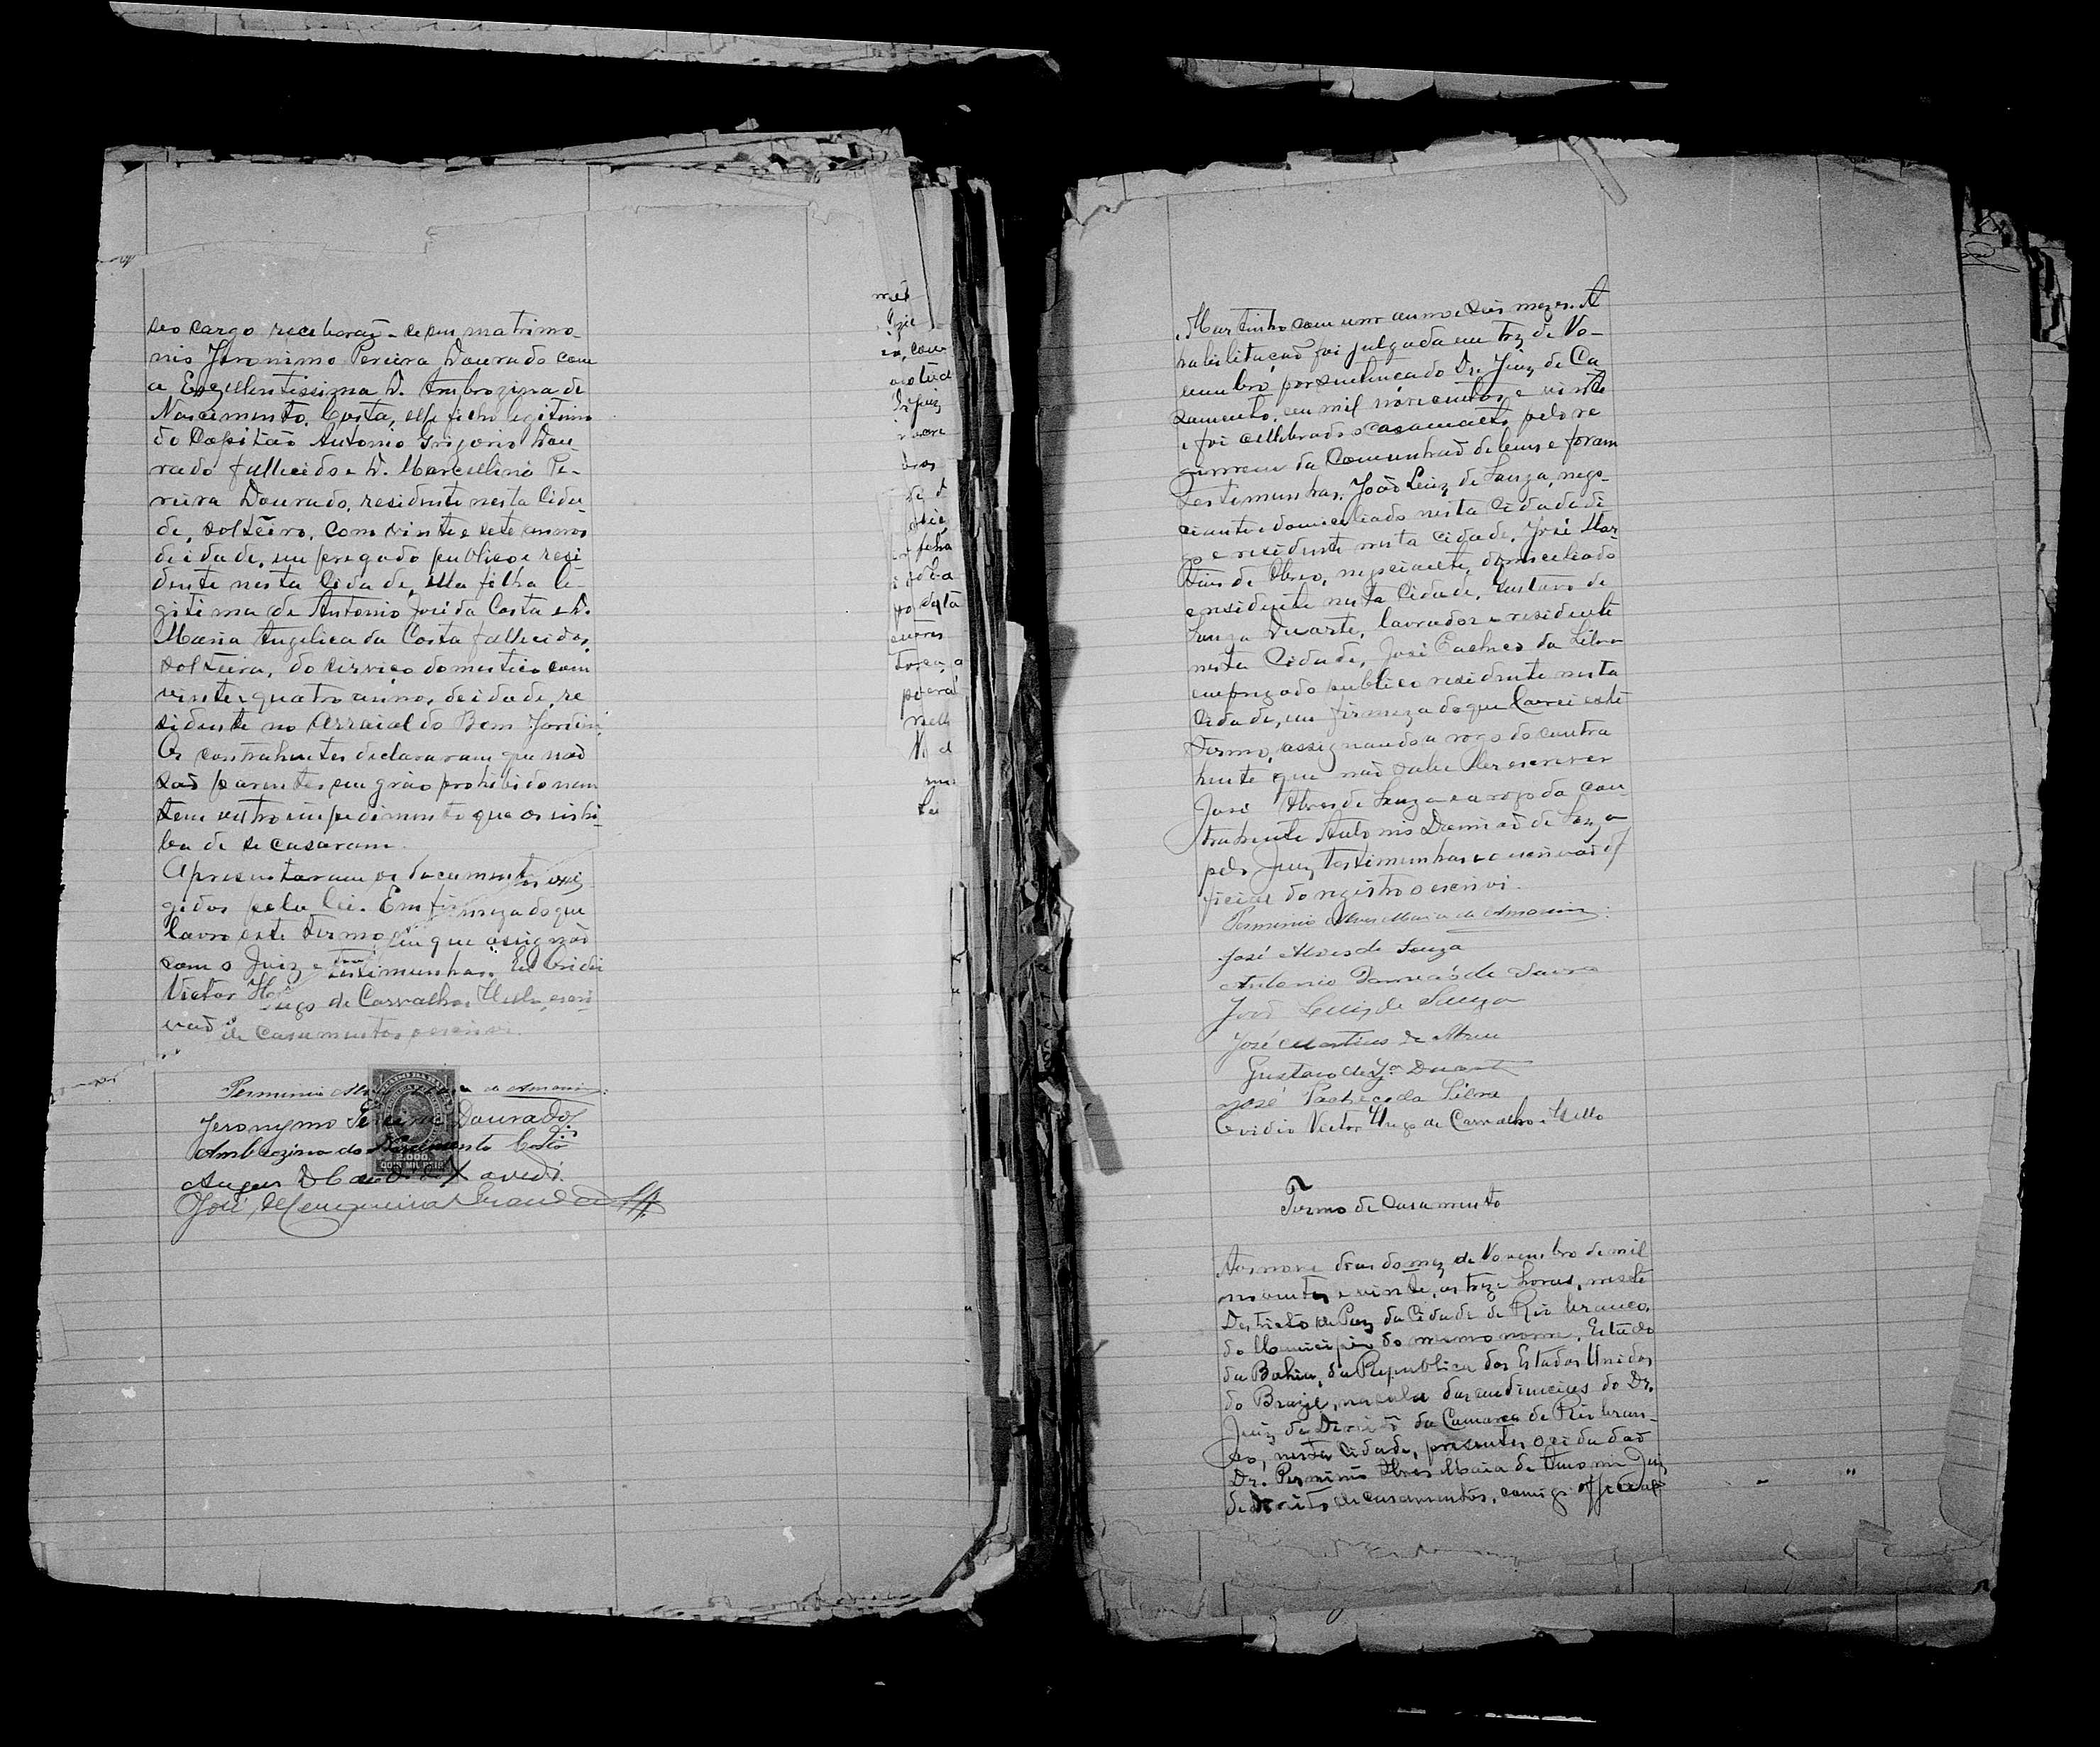 seo cargo receberaõ-se em matrimo-
nio Jeronimo Pereira Dourado com
a Exzellentissima D. Ambrozina do
Nascimento Costa, elle filho legitimo
do Capitão Antonio Grigorio Dou
rado fallecido e D. Marcellina Pe-
reira Dourado, residente nesta Cida-
de, solteiro, com vinte e sete annos
de idade, empregado publico e resi-
dente nesta Cidade, ella filha le-
gitima de Antonio José da Costa e D.
Maria Angelica da Costa fallecidos,
solteira, do serviço domestico com
vinte e quatro annos de idade, re
sidente no Arraial do Bom Jardim.
Os contrahentes declararam que naõ
saõ parentes em gráo prohibido nem
tem outro impedimento que os inhi-
ba de se casaram.
Apresentaram os documentos exi
gidos pela lei. Em firmeza do que
lavro este termo em que assignaõ
com o Juiz e testimunhas. Eu Ovidio
Victor Hugo de Carvalho e Mello, escri
vaõ de Casamentos o escrevi.
Perminio Alves Maia de Amorim
Jeronymo Pereira Dourado
Ambrozina do Nascimento Costa
2.000
DOIS MIL REIS
José
mil
com
Dr Juiz
de d
filha
N. d
lei
Martinho com um anno e dois mezes. A
habilitaçaõ foi julgada em trez de No-
vembro, por sentença do Dr. Juiz de Ca
zamento, em mil novecentos e vinte
e foi cellebrado o casamento pelo re
gimem da Comunhaõ de bens e foram
testimunhas, Joaõ Luiz de Souza, nego-
ciante e domiciliado nesta Cidade di
go e residente nesta Cidade, José Mar-
tins de Abreo, negociante, domiciliado
e residente nesta Cidade, Gustavo de
Souza Duarte, lavrador e residente
nesta Cidade, José Pacheco da Silva
empregado publico residente nesta
Cidade, em firmeza do que lavrei este
termo, assignando a rogo do contra
hente que naõ sabe ler escrever
José Alves de Souza e a rogo da con-
trahente Antonio Damiaõ de Souza
pelo Juiz, testimunhas e o escrivaõ of
ficial do registro o escrivi.
Perminio Alves Maia de Amorim
José Alves de Souza
Antonio Damiaõ de Souza
Joaõ Luiz de Souza
José Martins de Abreu
Gustavo de Sza Duarte
José Pacheco da Silva
Ovidio Victor Hugo de Carvalho e Mello
Termo de Casamento
Aos nove dias do mez de Novembro de mil
novecentos e vinte, as treze horas, neste
Destricto de Paz da Cidade de Rio branco,
do Municipio do mesmo nome, Estado
da Bahia, da Republica dos Estados Unidos
do Brazil, na sala das audiencias do Dr.
Juiz de Direito da Comarca de Rio bran-
co, nesta Cidade, presentes o cidadaõ
Dr. Perminio Alves Maia de Amorim Juiz
de direito de casamentos, comigo official